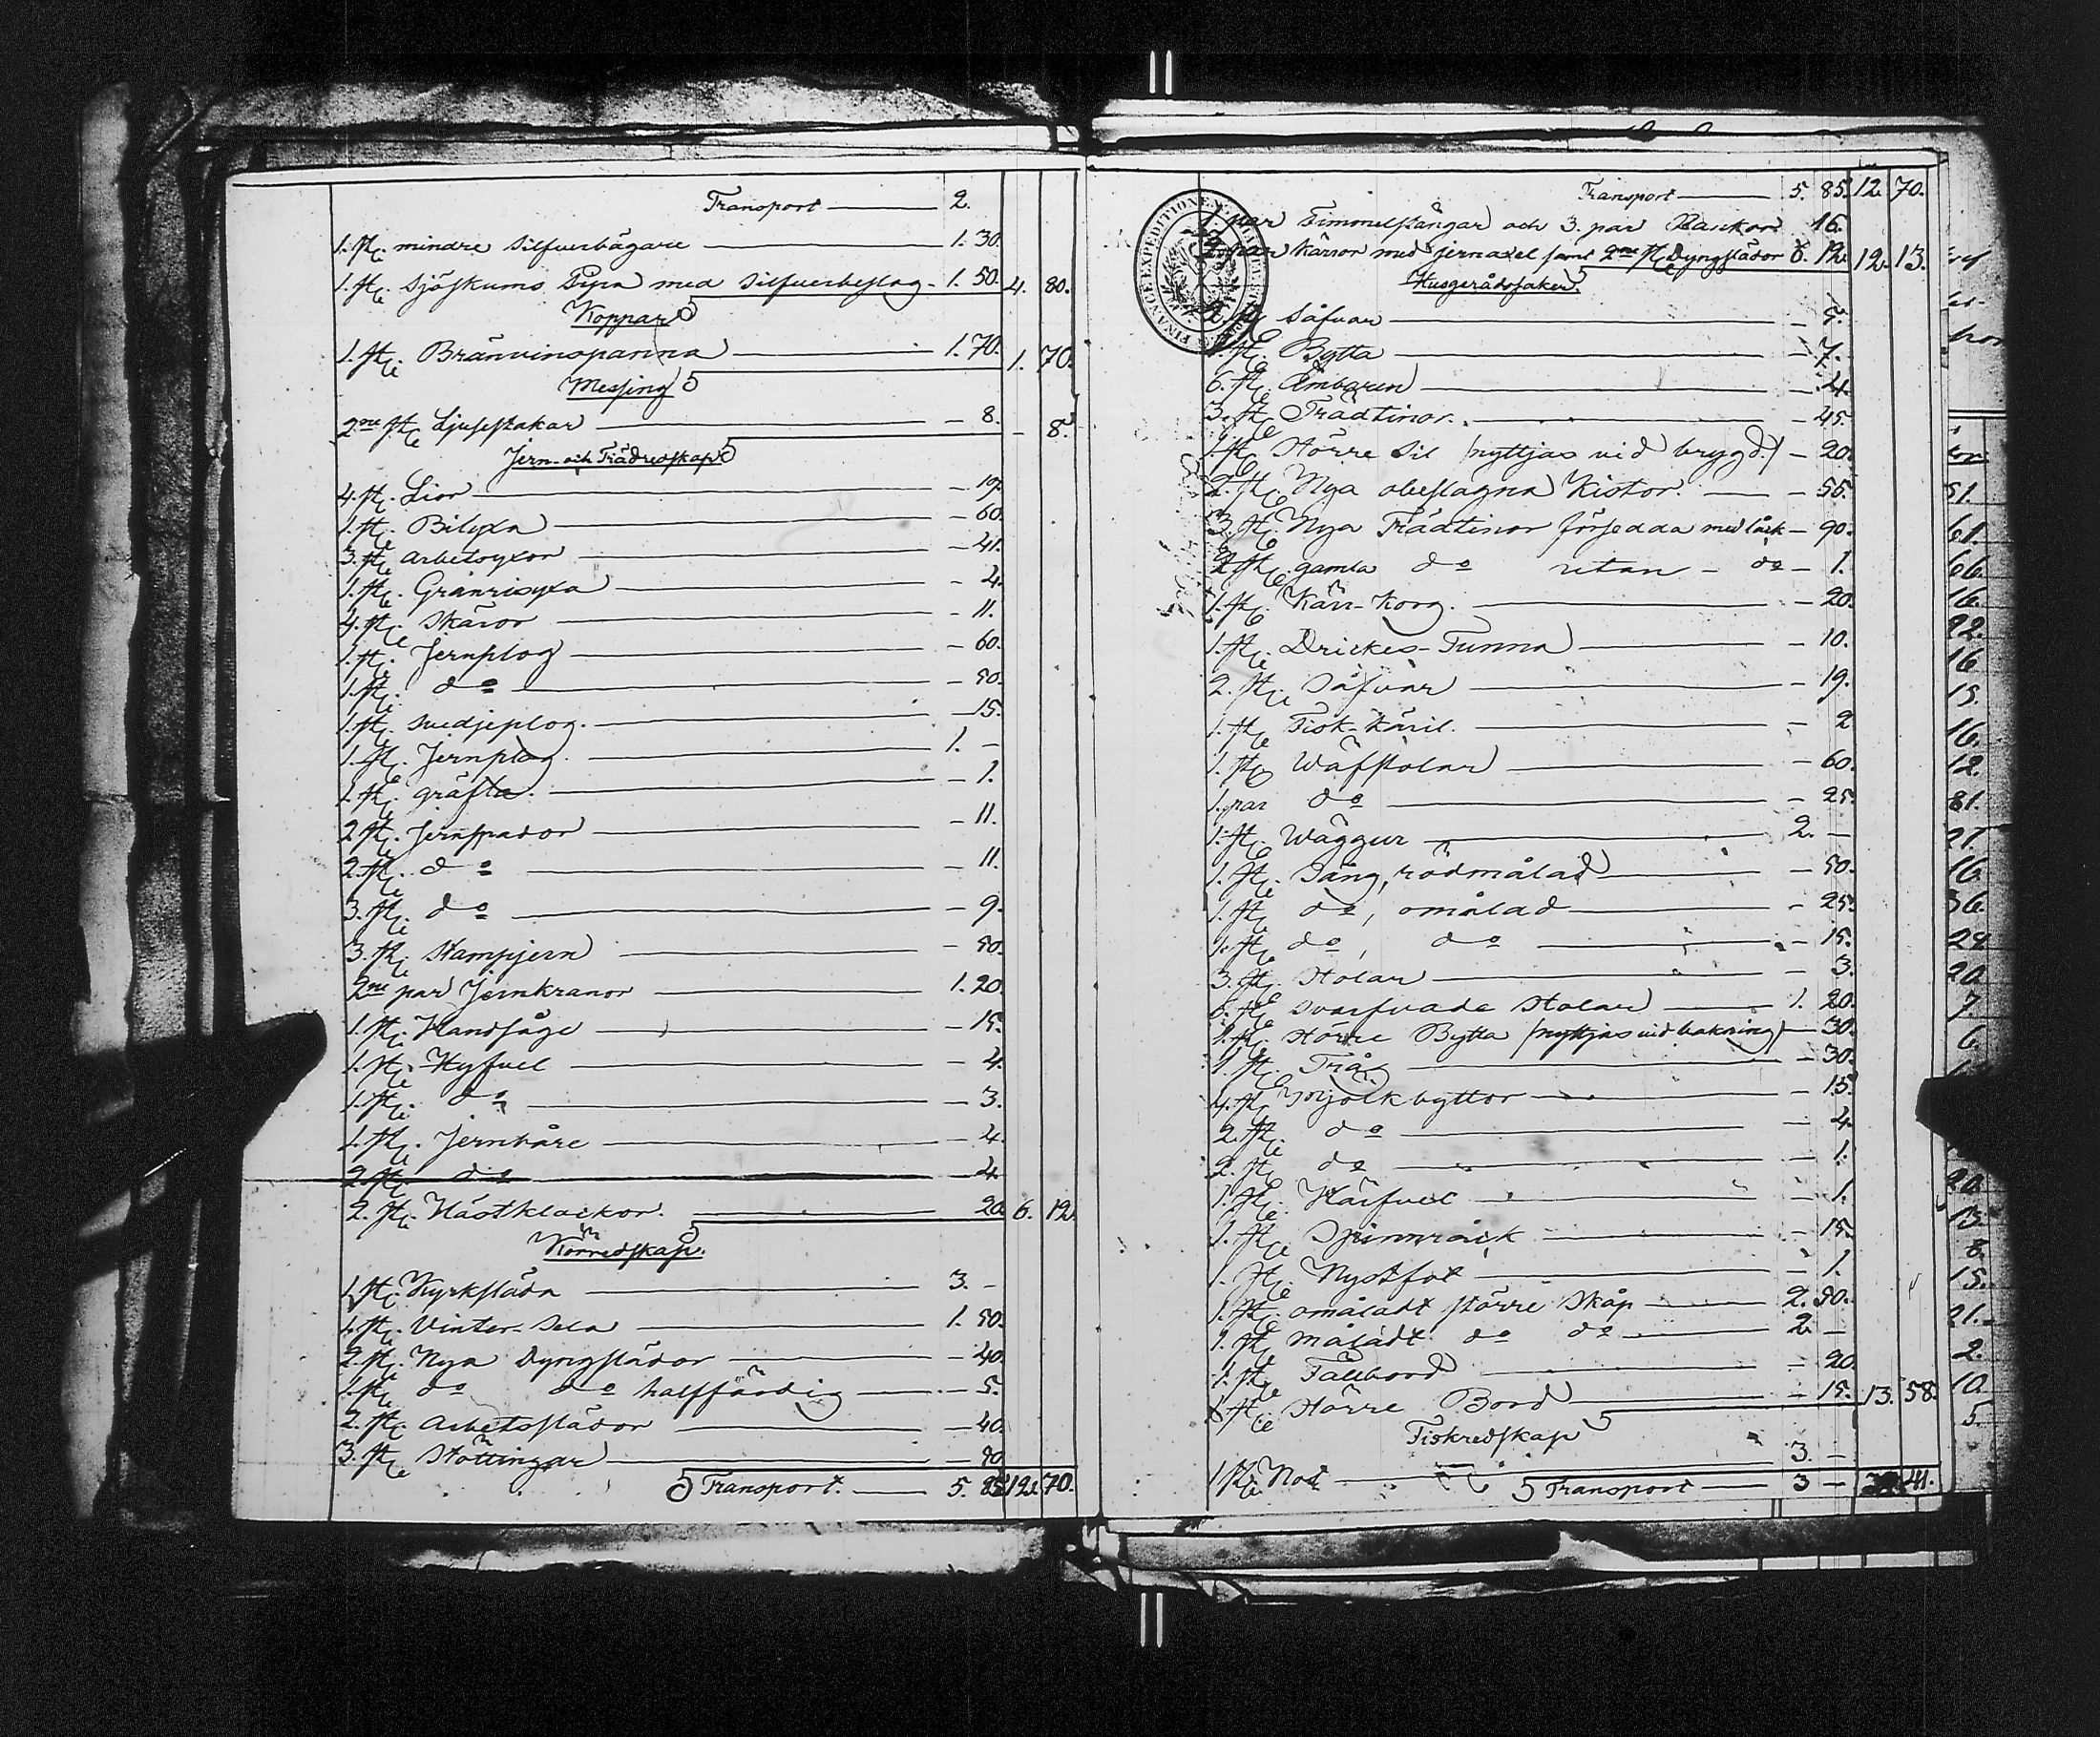 Transport — 2.
1. st. mindre silfverbägare — 1. 30.
1. st. sjöskums Pipa med silfverbeslag - 1. 50. 4. 80.
Koppar
1. st. Bränvinspanna — 1. 70. 1. 70.
Messing
2ne st. Ljusstakar — 8. — 8.
Jern- och Trädredskap
4. st. Lior — 19.
1. st. Bilyxa — 60.
3. st. arbetsyxor — 41.
1. st. Granrisyxa — 4.
4. st. skäror — 11.
1. st. Jernplog — 60.
1. st. do — 50.
1. st. svedjeplog. — 15.
1. st. Jernplog. — 1. —
1. st. gräfta. — 1.
2 st. Jernspador — 11.
2. st. do — 11.
3. st. do — 9.
3. st. Stampjern — 50.
2ne par Jernkranor — 1. 20.
1. st. Handsåge — 15.
1. st. Hyfvel — 4.
1. st. do — 3.
1. st. Jernbåre — 4.
2 st. do — 4.
2. st. Hästklackor. — 20. 6. 12.
Körredskap.
1. st. Kyrksläda — 3. —
1. st. Vinter-Sela — 1. 50.
2. st. Nya Dyngslädor — 40.
1. st. do do halffärdig — 5.
2. st. Arbetsslädor — 40.
3. st. Stöttingar — 50
Transport. — 5. 85 12. 70.
Transport — 5. 85. 12. 70.
1. par Fimmelstängar och 3. par Rankor 16.
par Kärror med jernaxel samt 2ne st. Dyngslädor 6. 12. 12. 13.
Husgerådssaker
2. st. Såfvar — 5.
1. st. Bytta — 7.
6. st. Ämbaren — 4.
3. st. Trädtinor. — 45.
1. st. Större Sil (nyttjas vid brygd) — 20.
2. st. Nya obeslagna Kistor. — 55.
3. st. Nya Trädtinor försedda med låck — 90.
2 st. gamla do utan - do — 1.
1. st. Kärr-Korg. — 20.
1. st. Drickes-Tunna — 10.
2. st. Såfvar — 19.
1. st. Fisk-Käril. — 2
1. st. Wäfstolar — 60.
1. par do — 25.
1. st. Wäggur — 2. —
1. st. Säng, rödmålad — 50.
1. st. do, omålad — 25.
1. st. do, do — 15.
3. st. Stolar — 3.
6. st. svarfvade Stolar — 1. 20.
1. st. större Bytta (nyttjas vid bakning) — 30.
1. st. Tråg — 30.
4. st. Mjölkbyttor — 15.
2. st. do — 4.
2. st. do — 1.
1. st. Härfvel — 1.
1. st. Spinnråck — 15.
1. st. Nystfot — 1.
1. st. omåladt större Skåp — 2. 50.
1. st. måladt do do — 2. —
1. st. Fällbord — 20.
1. st. större Bord — 15. 13. 58.
Fiskredskap
1 st. Not — 3. —
Transport — 3 — 41.